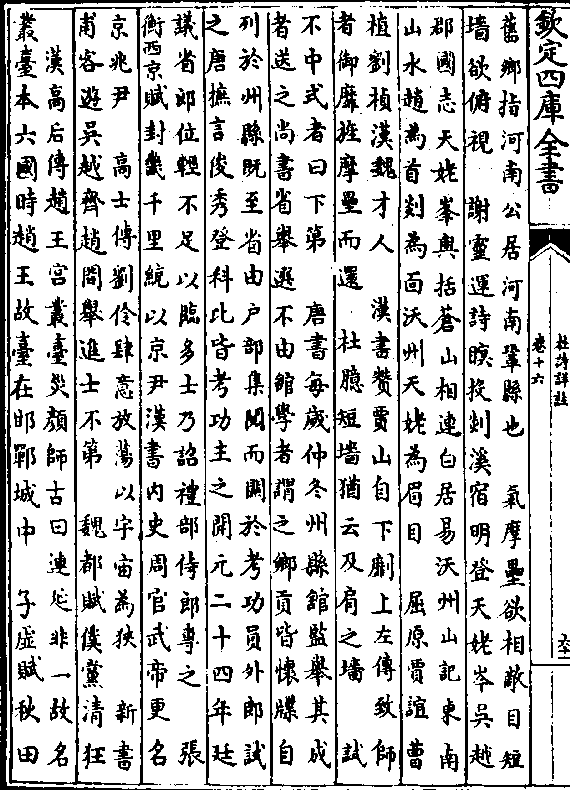 欽定四庫全書
杜詩詳註
卷十六
舊鄉指河南公居河南鞏縣也　氣摩壘欲相敵目短
墻欲俯視　謝靈運詩暝投剡溪宿明登天姥岑吳越
郡國志天姥峯與括蒼山相連白居易沃州山記東南
山水越為首剡為面沃州天姥為眉目　屈原賈誼曹
植劉楨漢魏才人　漢書贊賈山自下劘上左傳致師
者御靡旌摩壘而還　杜臆短墻猶云及肩之墻　試
不中式者曰下第　唐書每歲仲冬州縣館監舉其成
者送之尚書省舉選不由館學者謂之鄉貢皆懷牒自
列於州縣既至省由戶部集閱而關於考功員外郎試
之唐摭言俊秀登科比皆考功主之開元二十四年廷
議省郎位輕不足以臨多士乃詔禮部侍郎專之　張
衡西京賦封畿千里統以京尹漢書内史周官武帝更名
京兆尹　高士傳劉伶肆意放蕩以宇宙為狹　新書
甫客遊吳越齊趙間舉進士不第　魏都賦僕黨清狂
漢高后傳趙王宮叢臺災顔師古曰連延非一故名
叢臺本六國時趙王故臺在邯鄲城中　子虛賦秋田